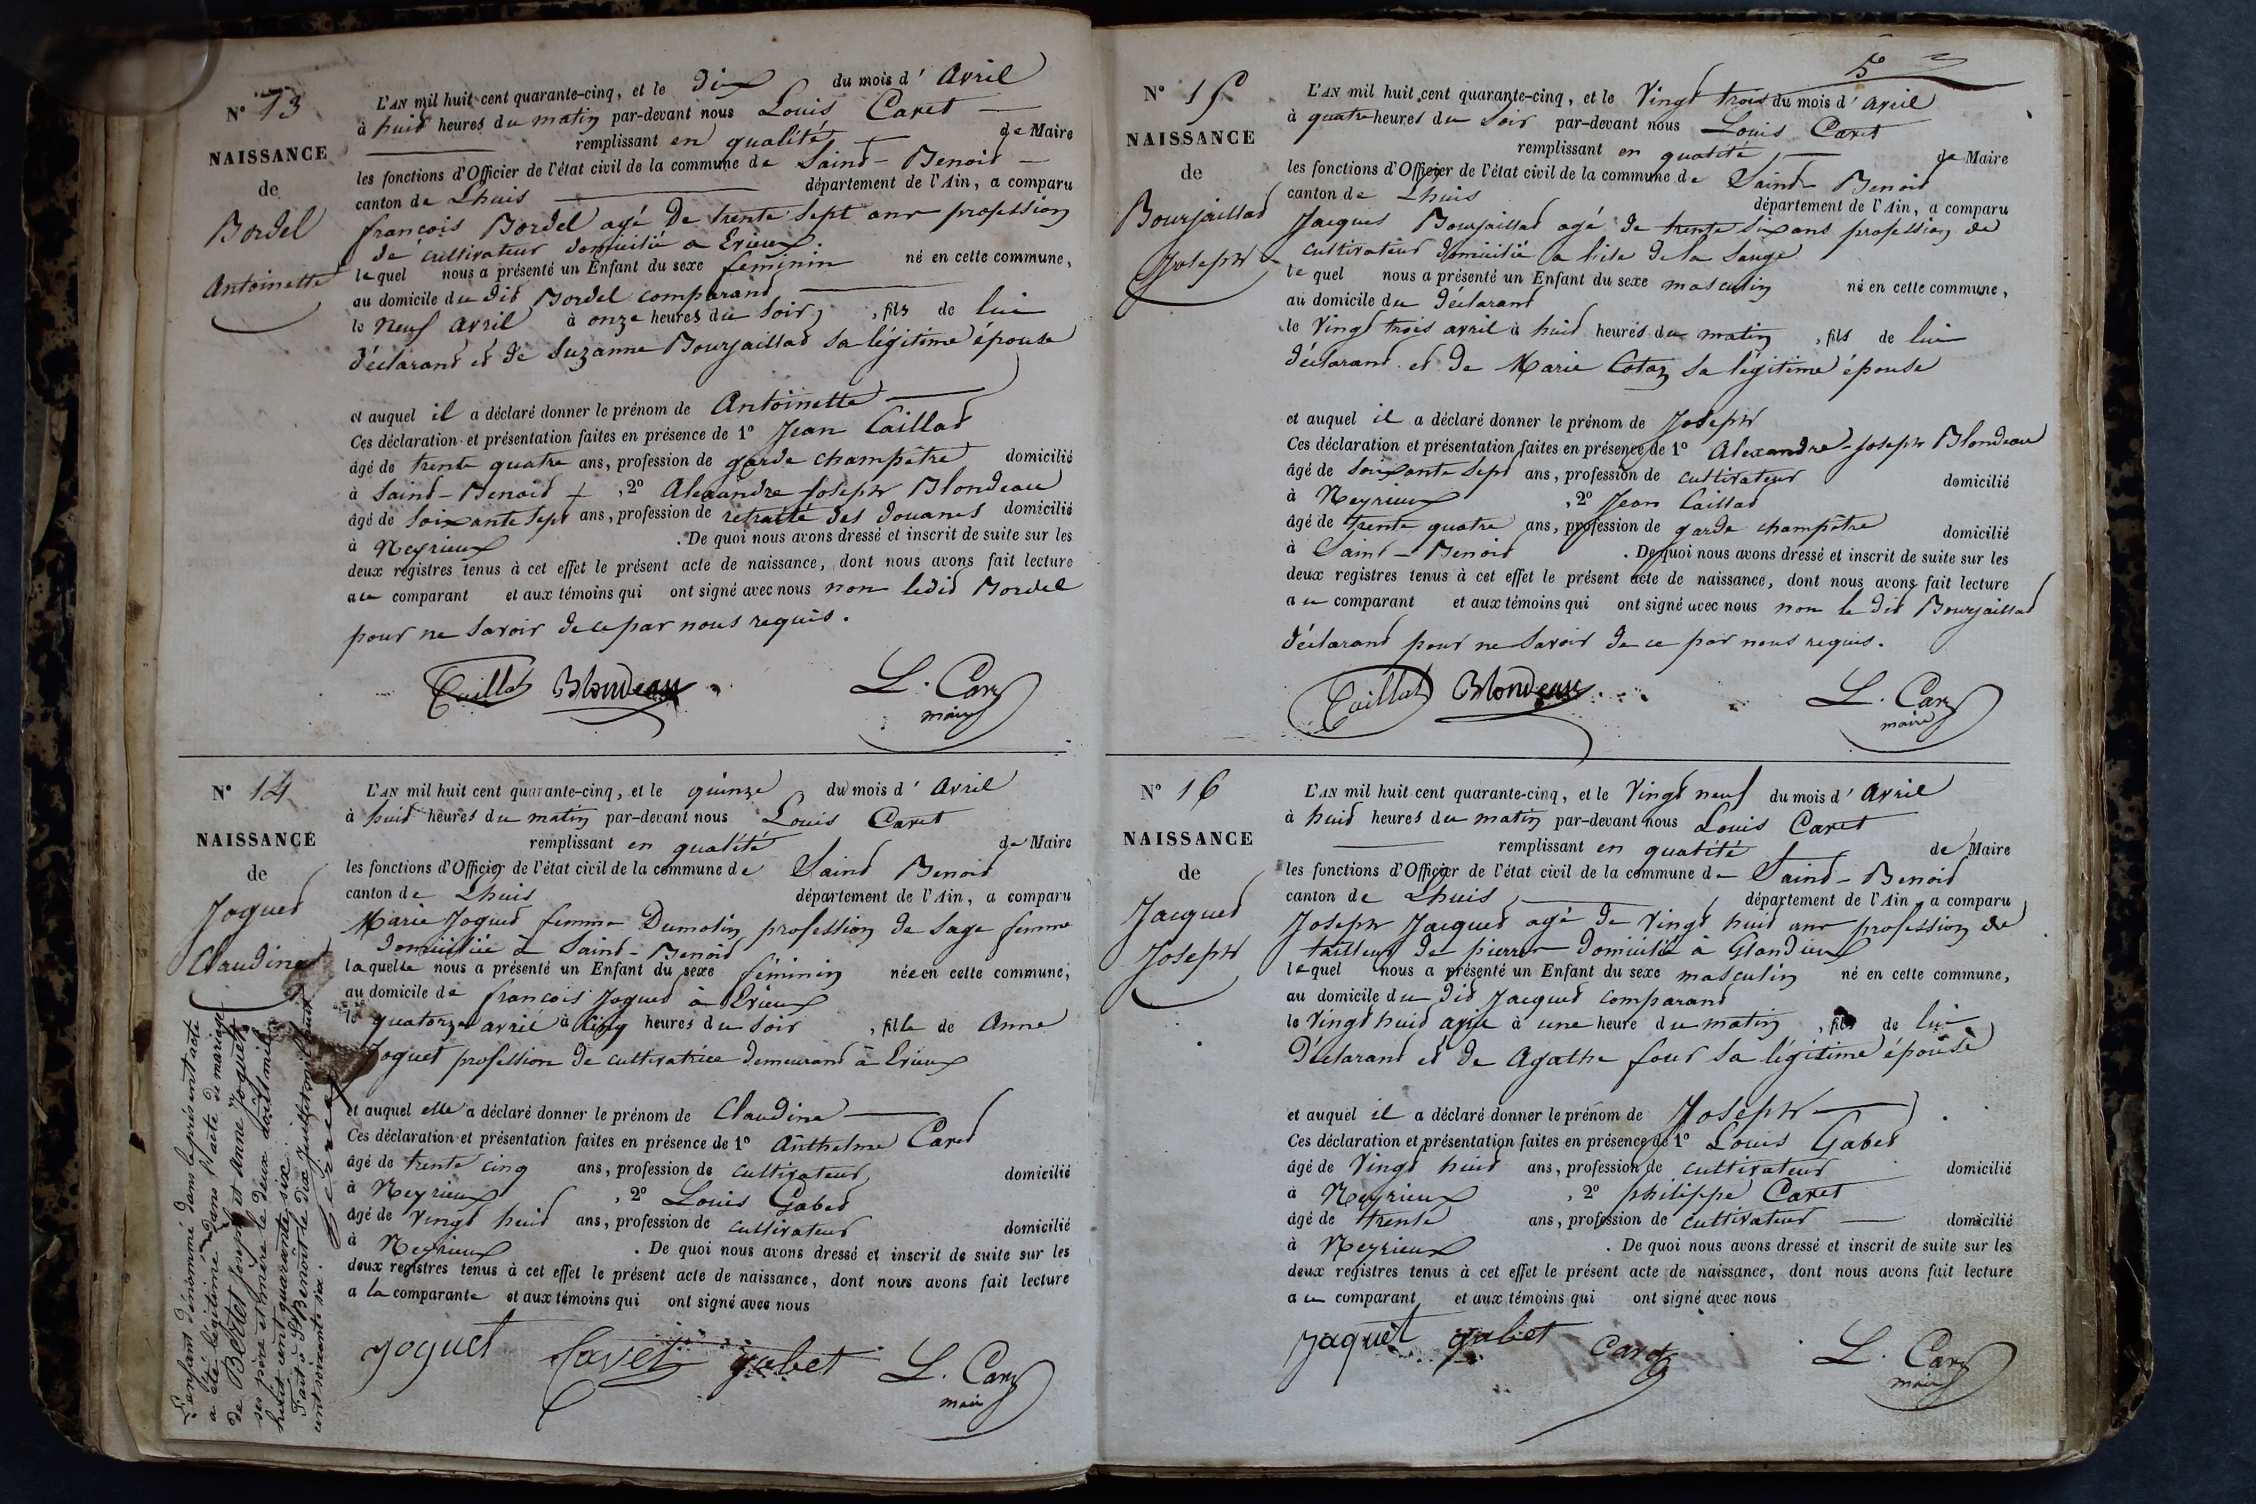 N° 13
NAISSANCE
de
Bordel
Antoinette
L'AN mil huit cent quarante-cinq, et le Dix du mois d' Avril
à huit heures du matin par-devant nous Louis Caret
remplissant en qualité de Maire
les fonctions d'Officier de l'état civil de la commune de Saint-Benoit
canton de Lhuis département de l'Ain, a comparu
françois Bordel agé De trente sept ans profession
de cultivateur domicilié a Erieux.
lequel nous a présenté un Enfant du sexe feminin né en cette commune,
au domicile du dit Bordel comparant
le neuf avril à onze heures du soir, fils de lui
déclarant et de Suzanne Bourjaillad sa légitime épouse
et auquel il a déclaré donner le prénom de Antoinette
Ces déclaration et présentation faites en présence de 1° Jean Caillat
âgé de trente quatre ans, profession de garde champêtre domicilié
à Saint-Benoit , 2° Alexandre Joseph Blondeau
âgé de soixante sept ans, profession de retraité des douanes domicilié
à Neyrieux . De quoi nous avons dressé et inscrit de suite sur les
deux registres tenus à cet effet le présent acte de naissance, dont nous avons fait lecture
au comparant et aux témoins qui ont signé avec nous non ledit Bordel
pour ne savoir de ce par nous requis.
Caillat Blondeau L. Caret
maire
N° 14
NAISSANCE
de
Joguet
Claudine
L'AN mil huit cent quarante-cinq, et le quinze du mois d' Avril
à huit heures du matin par-devant nous Louis Caret
remplissant en qualité de Maire
les fonctions d'Officier de l'état civil de la commune de Saint Benoit
canton de Lhuis département de l'Ain, a comparu
Marie Joguet femme Dumolin profession de sage femme
domiciliée à Saint-Benoit
laquelle nous a présenté un Enfant du sexe féminin née en cette commune,
au domicile de françois Joguet à Erieux
le quatorze avril à cinq heures du soir , fille de Anne
Joguet profession de cultivatrice demeurant à Erieux
et auquel elle a déclaré donner le prénom de Claudine
Ces déclaration et présentation faites en présence de 1° Anthelme Caret
âgé de trente cinq ans, profession de cultivateur domicilié
à Neyrieux , 2° Louis Gabet
âgé de vingt huit ans, profession de cultivateur domicilié
à Neyrieux . De quoi nous avons dressé et inscrit de suite sur les
deux registres tenus à cet effet le présent acte de naissance, dont nous avons fait lecture
a la comparante et aux témoins qui ont signé avec nous
Joguet Cavet gabet L. Caret
maire
L'enfant dénommé dans le présent acte
a été légitimé dans l'acte de mariage
de Bertet Joseph et Anne Joguet
ses père et mère le deux août mil
huit cent quarante six.
Fait à St Benoit le dix Juillet mil huit
cent soixante six.
5e
N° 15
NAISSANCE
de
Bourjaillad
Joseph
L'AN mil huit cent quarante-cinq, et le Vingt trois du mois d' Avril
à quatre heures du soir par-devant nous Louis Caret
remplissant en qualité de Maire
les fonctions d'Officier de l'état civil de la commune de Saint Benoit
canton de Lhuis département de l'Ain, a comparu
Jacques Bourjaillad agé de trente six ans profession de
cultivateur domicilié a l'isle de la Sauge
lequel nous a présenté un Enfant du sexe masculin né en cette commune,
au domicile du déclarant
le Vingt trois avril à huit heures du matin , fils de lui
déclarant et de Marie Cotaz sa légitime épouse
et auquel il a déclaré donner le prénom de Joseph
Ces déclaration et présentation faites en présence de 1° Alexandre-Joseph Blondeau
âgé de soixante sept ans, profession de cultivateur domicilié
à Neyrieux , 2° Jean Caillat
âgé de trente quatre ans, profession de garde champêtre domicilié
à Saint-Benoit . De quoi nous avons dressé et inscrit de suite sur les
deux registres tenus à cet effet le présent acte de naissance, dont nous avons fait lecture
au comparant et aux témoins qui ont signé avec nous non le dit Bourjaillad
déclarant pour ne savoir de ce par nous requis.
Caillat Blondeau L. Caret
maire
N° 16
NAISSANCE
de
Jacquet
Joseph
L'AN mil huit cent quarante-cinq, et le Vingt neuf du mois d' Avril
à huit heures du matin par-devant nous Louis Caret
remplissant en qualité de Maire
les fonctions d'Officier de l'état civil de la commune de Saint-Benoit
canton de Lhuis département de l'Ain, a comparu
Joseph Jacquet agé de Vingt huit ans profession de
tailleur de pierre domicilié à Glandieu
lequel nous a présenté un Enfant du sexe masculin né en cette commune,
au domicile du dit Jacquet comparant
le Vingt huit avril à une heure du matin , fils de lui
Déclarant et de Agathe four sa légitime épouse
et auquel il a déclaré donner le prénom de Joseph
Ces déclaration et présentation faites en présence de 1° Louis Gabet
âgé de Vingt huit ans, profession de cultivateur domicilié
à Neyrieux , 2° philippe Caret
âgé de trente ans, profession de cultivateur domicilié
à Neyrieux . De quoi nous avons dressé et inscrit de suite sur les
deux registres tenus à cet effet le présent acte de naissance, dont nous avons fait lecture
au comparant et aux témoins qui ont signé avec nous
jaquet gabet Caret L. Caret
maire